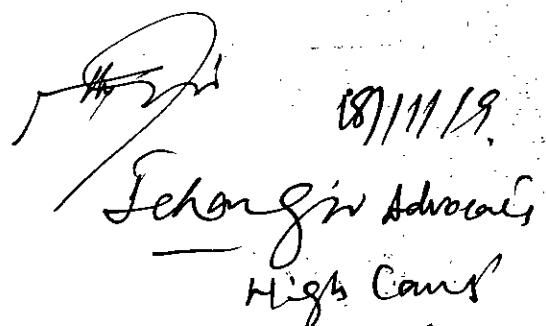 18/11/19.
Jehangir Advocate
High Court